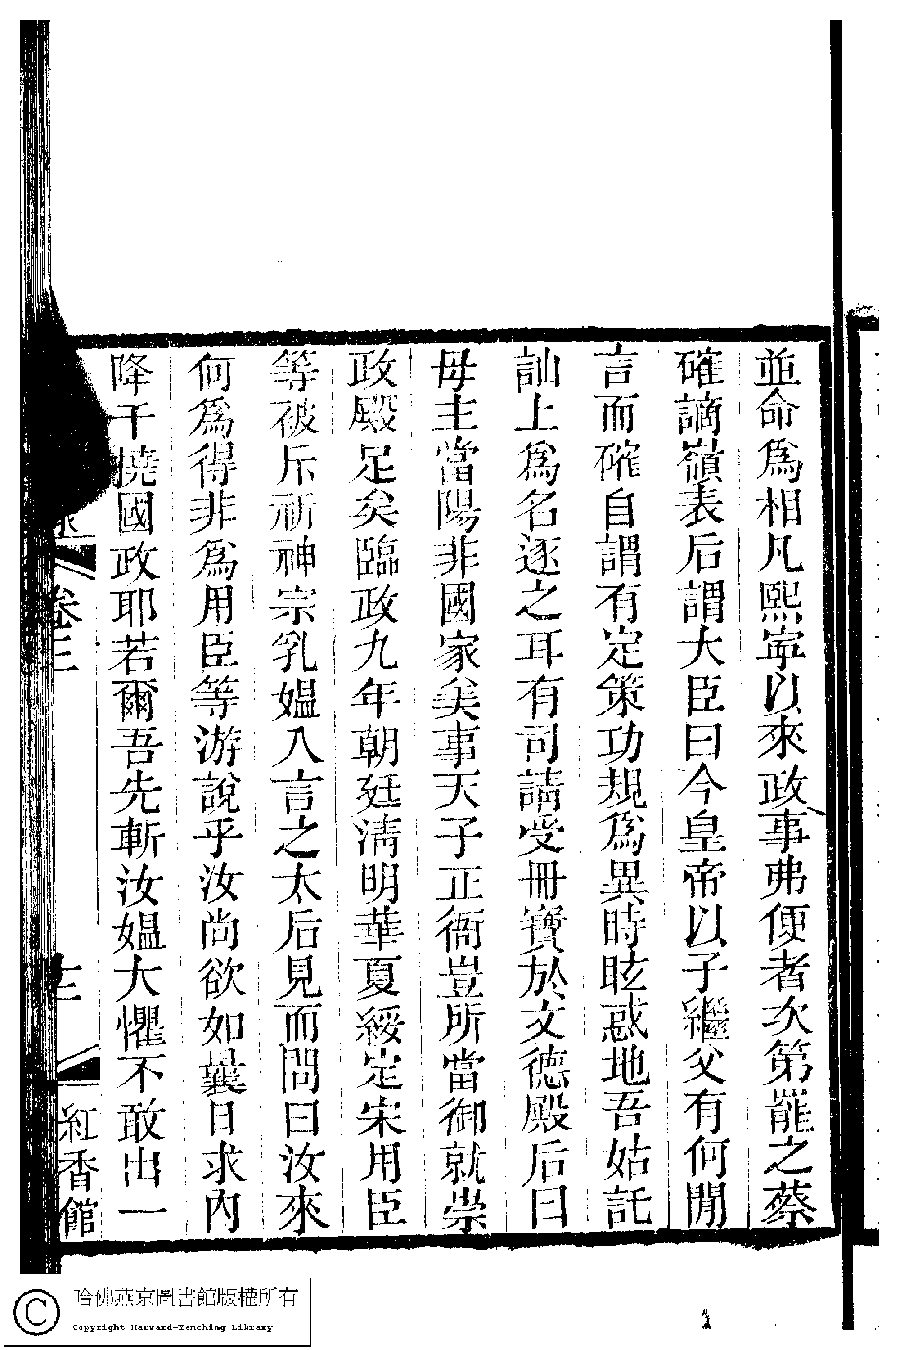 並命爲相凡熙寧以來政事弗便者次第罷之蔡
確謫嶺表后謂大臣曰今皇帝以子繼父有何閒
言而確自謂有定策功規爲異時眩惑地吾姑託
訕上爲名逐之耳有司請受冊寶於文德殿后曰
母主當陽非國家矣事天子正衙豈所當御就崇
政殿足矣臨政九年朝廷清明華夏綏定宋用臣
等被斥祈神宗乳媼入言之太后見而問曰汝來
何爲得非爲用臣等游說乎汝尚欲如曩日求內
降干撓國政耶若爾吾先斬汝媼大懼不敢出一
卷三
紅香館
哈佛燕京圖書館版權所有
Copyright Harvard-Yenching Library
1